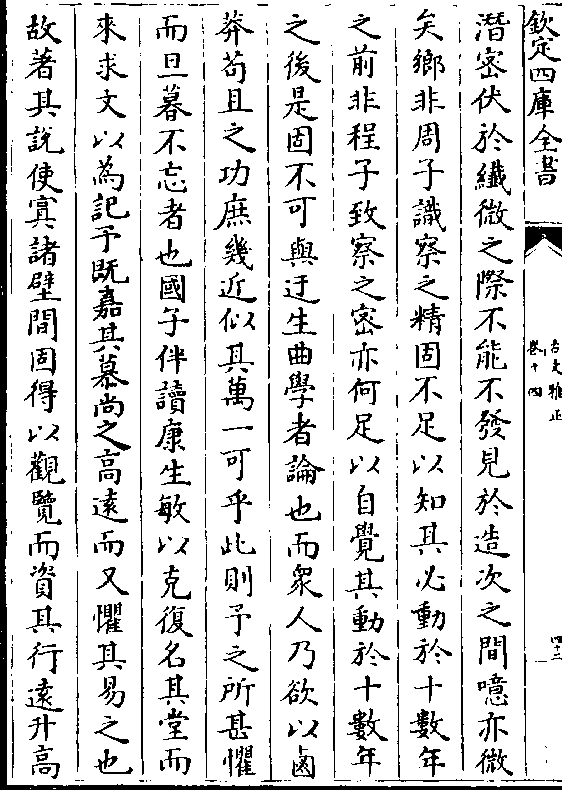 欽定四庫全書
古文雅正
卷十四
四十二
潛密伏於纎微之際不能不發見於造次之間噫亦微
矣鄉非周子識察之精固不足以知其必動於十數年
之前非程子致察之密亦何足以自覺其動於十數年
之後是固不可與迂生曲學者論也而衆人乃欲以鹵
莽苟且之功庶幾近似其萬一可乎此則予之所甚懼
而旦暮不忘者也國子伴讀康生敏以克復名其堂而
來求文以為記予既嘉其慕尚之髙逺而又懼其易之也
故著其説使寘諸壁間固得以觀覽而資其行逺升髙